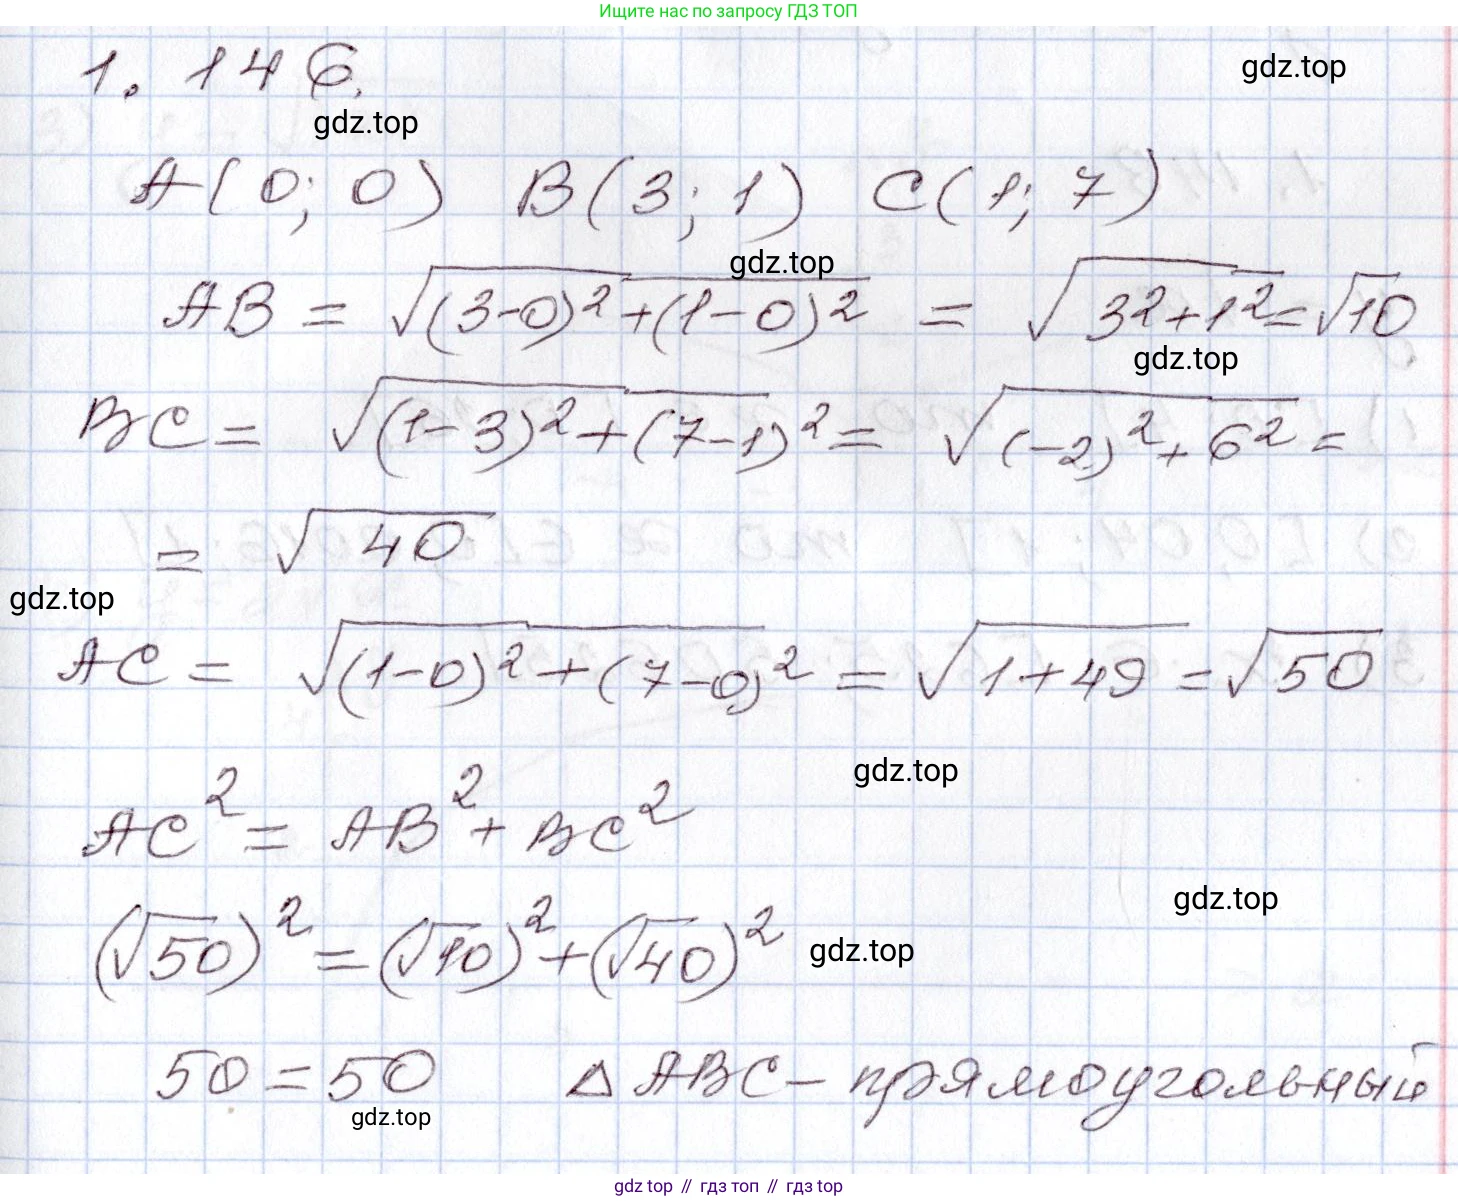 Ищите нас по запросу ГДЗ ТОП
1.146.
gdz.top
gdz.top
A(0; 0) B(3; 1) C(1; 7)
gdz.top
AB = √((3-0)²+(1-0)²) = √(3²+1²) = √10
gdz.top
BC = √((1-3)²+(7-1)²) = √((-2)²+6²) =
= √40
gdz.top
AC = √((1-0)²+(7-0)²) = √(1+49) = √50
gdz.top
AC² = AB² + BC²
gdz.top
(√50)² = (√10)² + (√40)²
gdz.top
50 = 50 △ ABC – прямоугольный
gdz.top
gdz top // гдз топ // гдз top